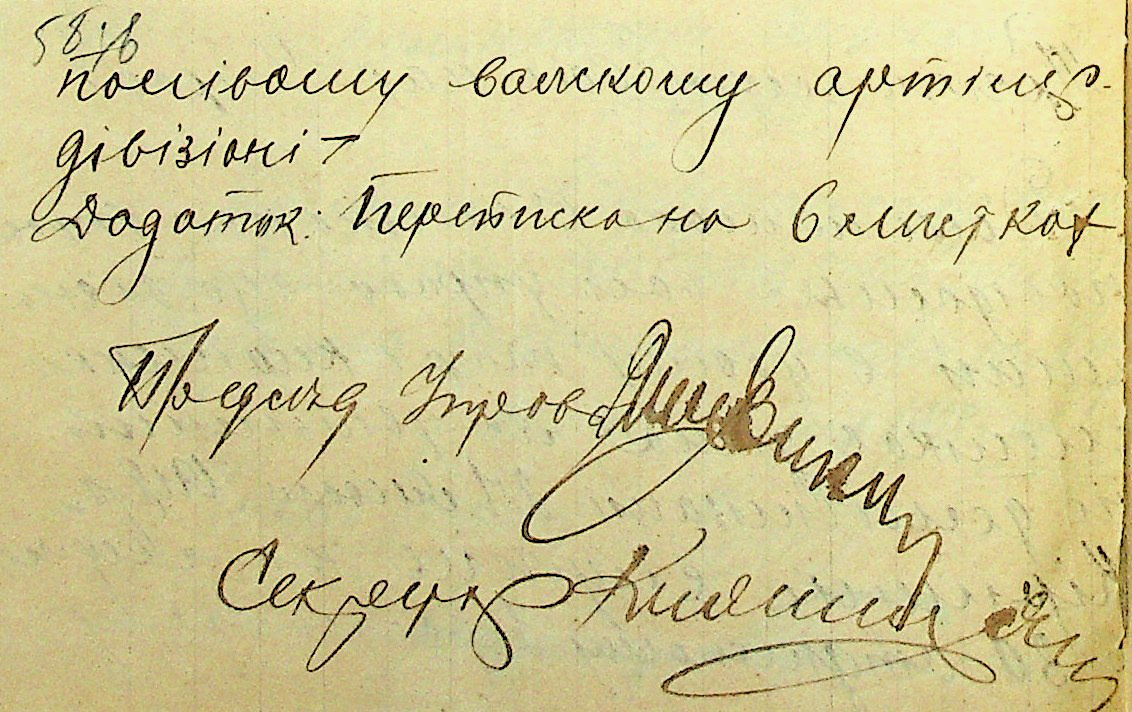 полівому важскому артилер-
дівізіоні —
Додаток: Переписка на 6 листках
Предсід Управ
Секретар